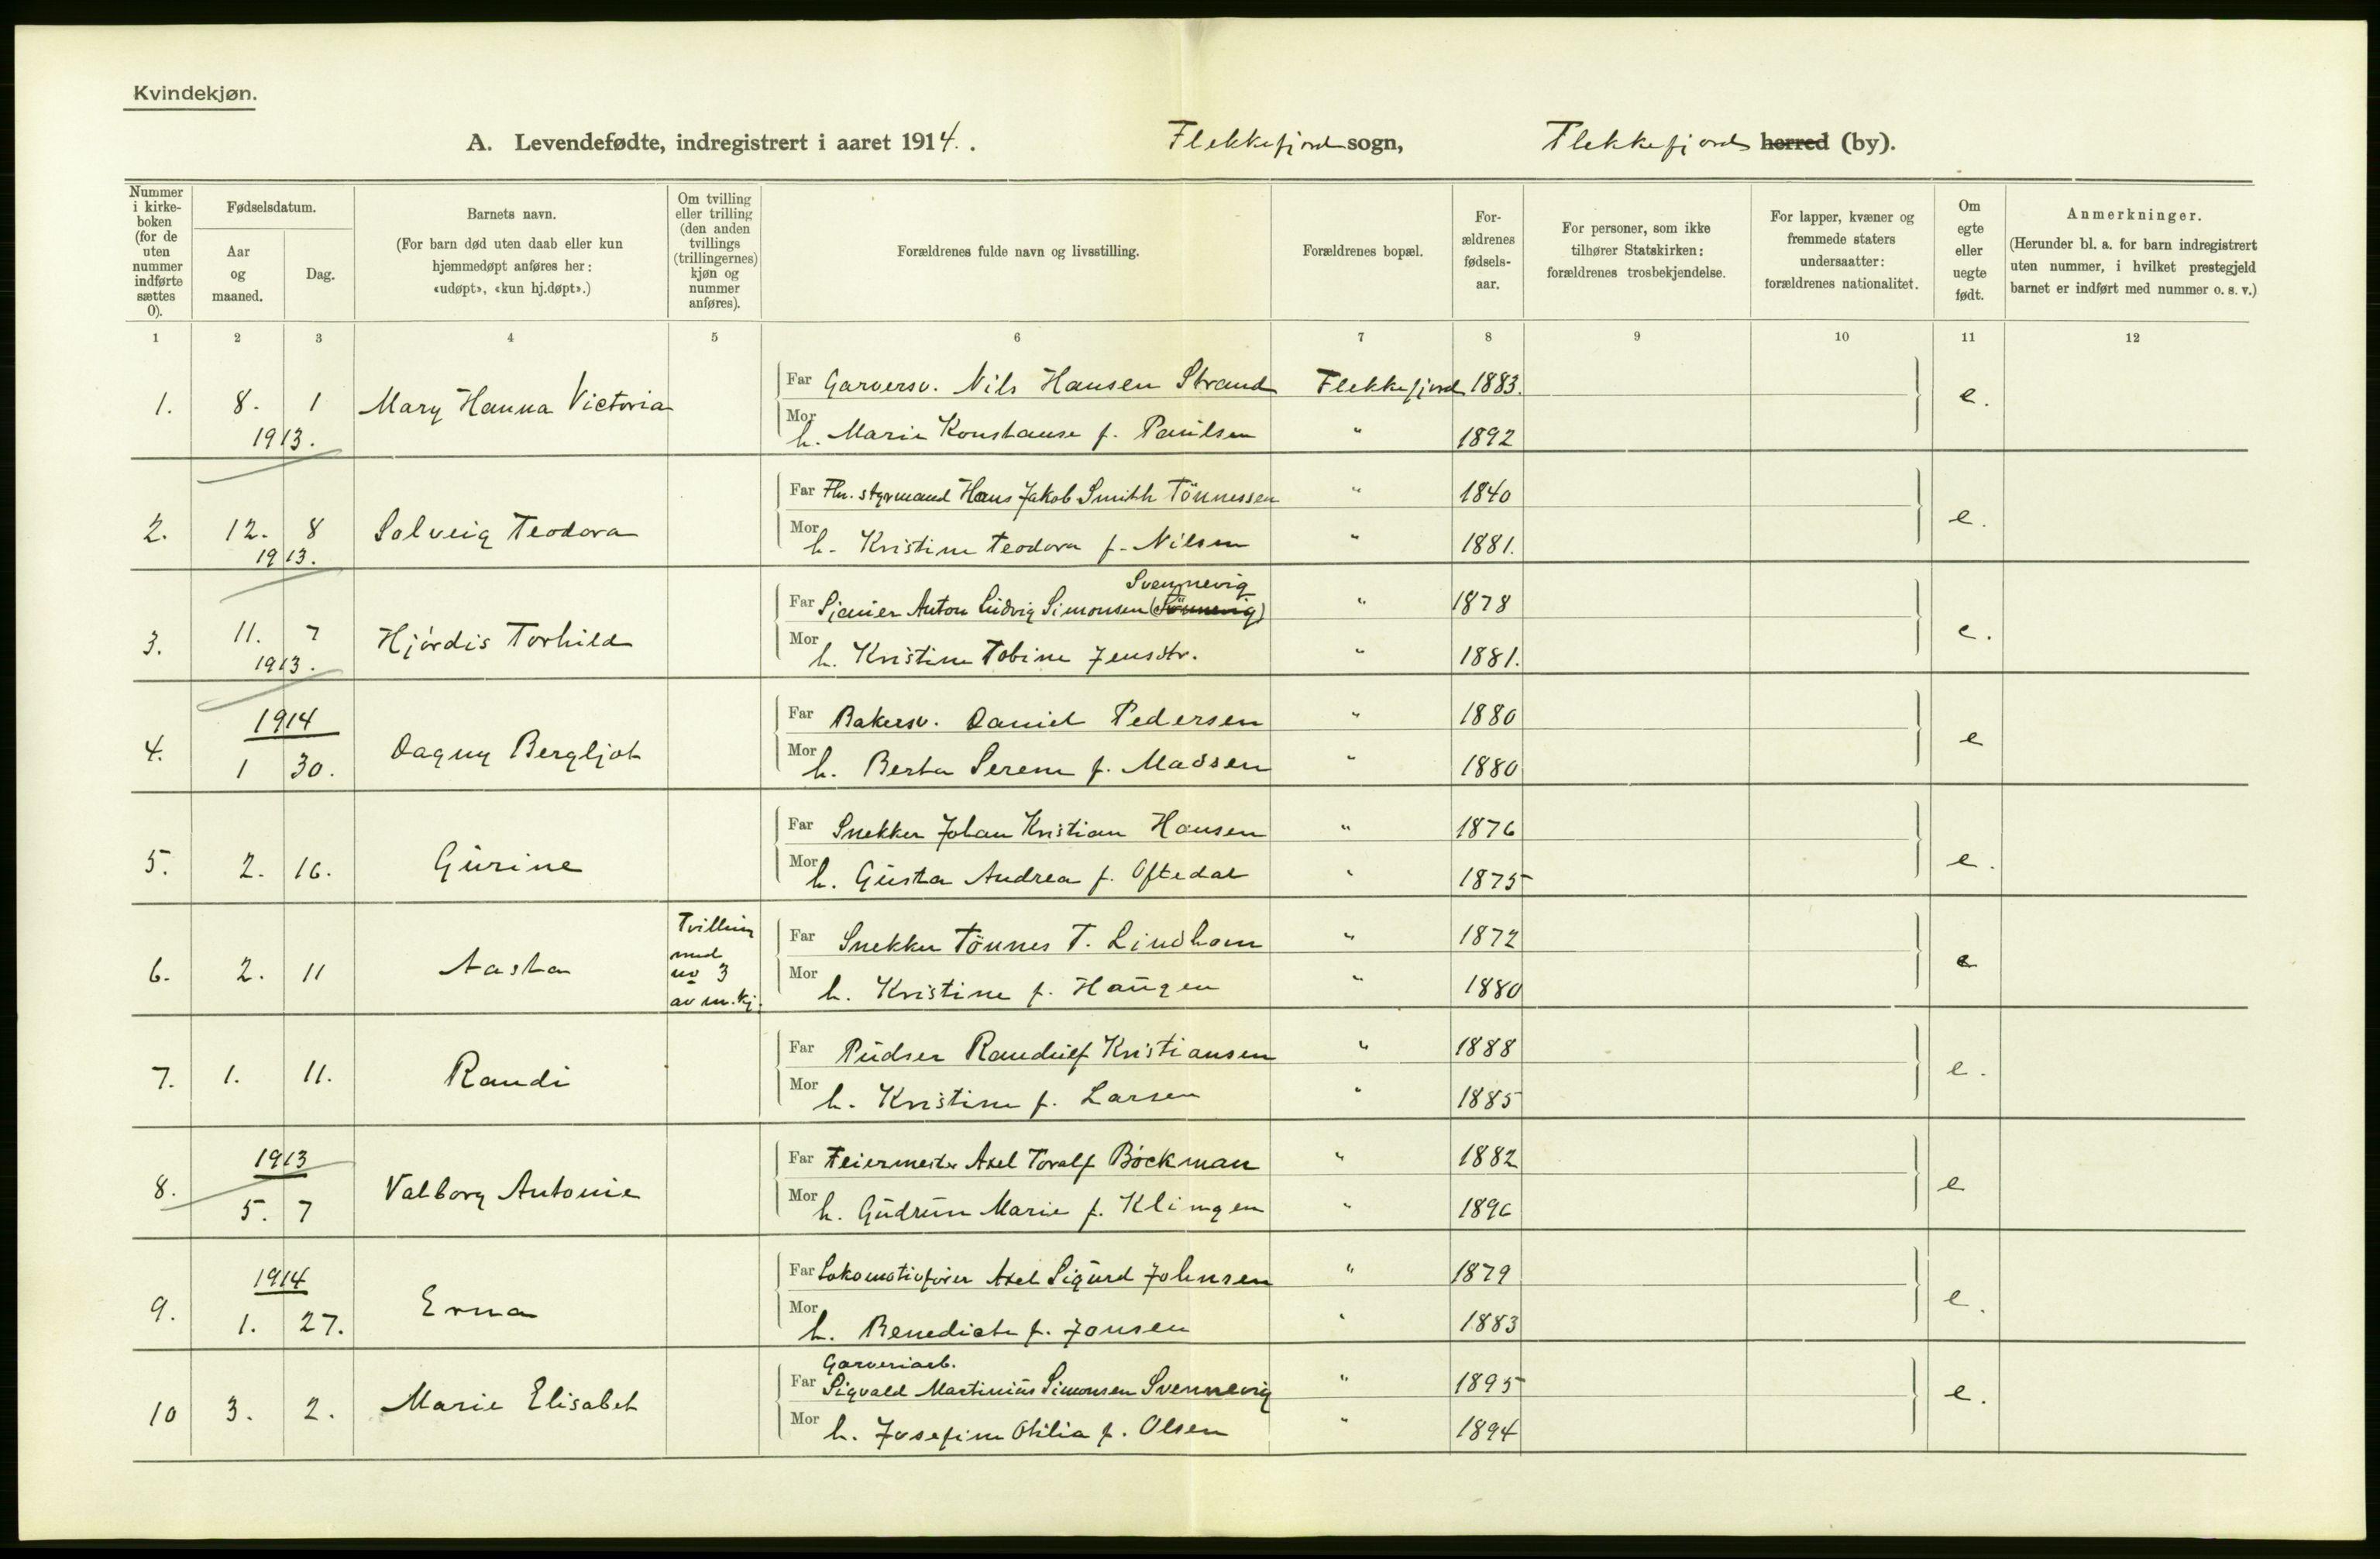 Kvindekjøn.
A. Levendefødte, indregistrert i aaret 1914. . Flekkefjord sogn, Flekkefjord herred (by).
Nummer i kirke-boken (for de uten nummer indførte sættes 0).
Fødselsdatum.
Aar og maaned.
Dag.
Barnets navn.
(For barn død uten daab eller kun hjemmedøpt anføres her: «udøpt», «kun hj.døpt».)
Om tvilling eller trilling (den anden tvillings (trillingernes) kjøn og nummer anføres).
Forældrenes fulde navn og livsstilling.
Forældrenes bopæl.
For-ældrenes fødsels-aar.
For personer, som ikke tilhører Statskirken: forældrenes trosbekjendelse.
For lapper, kvæner og fremmede staters undersaatter: forældrenes nationalitet.
Om egte eller uegte født.
Anmerkninger.
(Herunder bl. a. for barn indregistrert uten nummer, i hvilket prestegjeld barnet er indført med nummer o. s. v.)
1 2 3 4 5 6 7 8 9 10 11 12
Far Garversv. Nils Hansen Strand Flekkefjord 1883.
1. 8. 1 Mary Hanna Victoria e.
1913.
Mor h. Marie Konstanse f. Paulsen " 1892
Far Fhv. styrmand Hans Jakob Smith Tönnessen " 1840
2. 12. 8 Solveig Teodora e.
1913.
Mor h. Kristine Teodora f. Nilsen " 1881.
Svennevig
Far Sjauer Anton Ludvig Simonsen (Sönnevig) " 1878
3. 11. 7 Hjördis Torhild e.
1913.
Mor h. Kristine Tobine Jensdtr. " 1881.
1914
Far Bakersv. Daniel Pedersen " 1880
4. 1 30. Dagny Bergljot e
Mor h. Berta Serene f. Madsen " 1880
Far Snekker Johan Kristian Hansen " 1876
5. 2. 16. Gurine e.
Mor h. Gusta Andrea f. Oftedal " 1875
Tvilling
med
no 3
av m.kj.
Far Snekker Tönnes T. Lindham " 1872
6. 2. 11 Aasta e
Mor h. Kristine f. Haugen " 1880
Far Pudser Randulf Kristiansen " 1888
7. 1. 11. Randi e.
Mor h. Kristine f. Larsen " 1885
1913
Far Feiermester Axel Toralf Böckman " 1882
8. 5. 7 Valborg Antonie e
Mor h. Gudrun Marie f. Klingen " 1896
1914
Far Lokomotivfører Axel Sigurd Johnsen " 1879
9. 1. 27. Erna e.
Mor h. Benedicte f. Jonsen " 1883
Garveriarb.
Far Sigvald Martinius Simonsen Svennevig " 1895
10 3. 2. Marie Elisabet e.
Mor h. Josefine Otilia f. Olsen " 1894